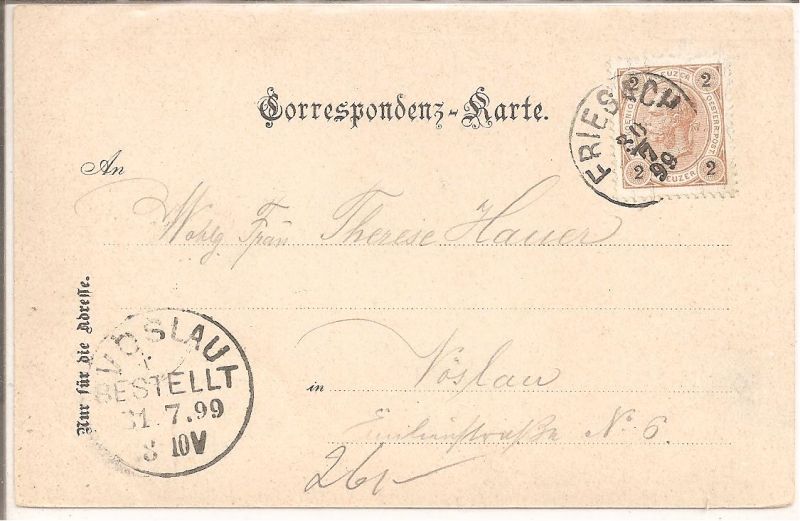 Correspondenz-Karte.
2 KREUZER 2
OESTERR.POST
2 KREUZER 2
FRIESACH
30 7 99
An
Wohlg. Frau Therese Hauer
Nur für die Adresse.
in Vöslau
N° 6.
VÖSLAU
BESTELLT
31.7.99
8 10V
26/-